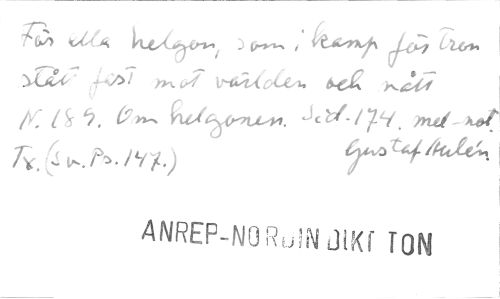 För alla helgon, som i kamp för tron
stått fast mot världen och nått
N. 189. Om helgonen. Sid. 174. mel-not.
Tx. (Sv. Ps. 147.) Gustaf Aulén
ANREP-NORDIN DIKT TON